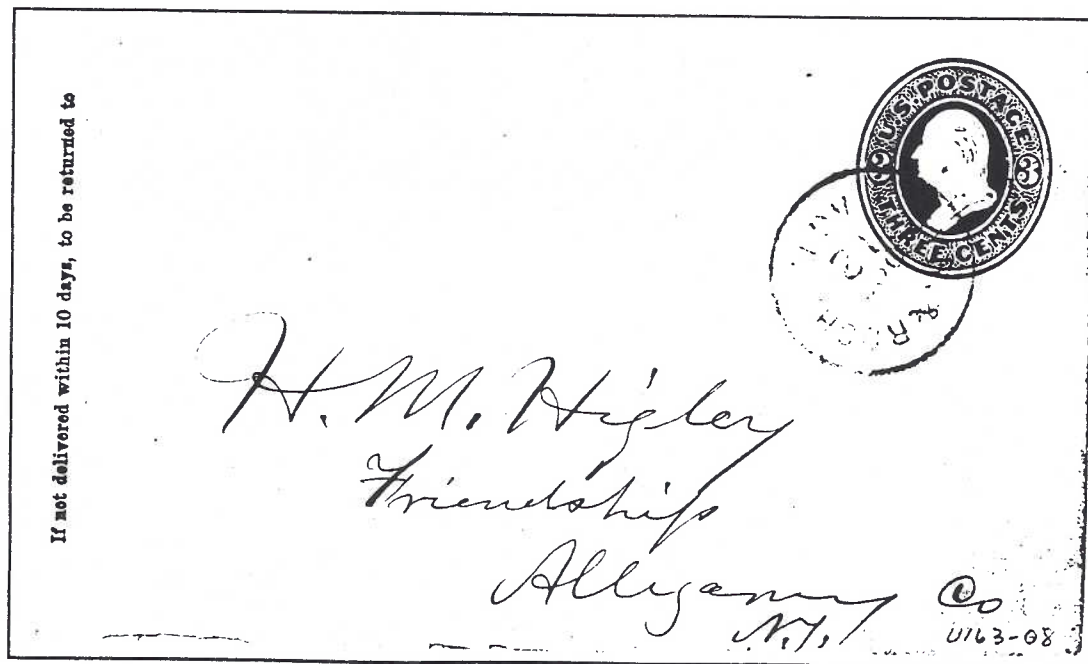 If not delivered within 10 days, to be returned to
U.S. POSTAGE
3 3
THREE CENTS
& ROCH
H. M. Higley
Friendship
Allegany Co
N.Y.
U163-08